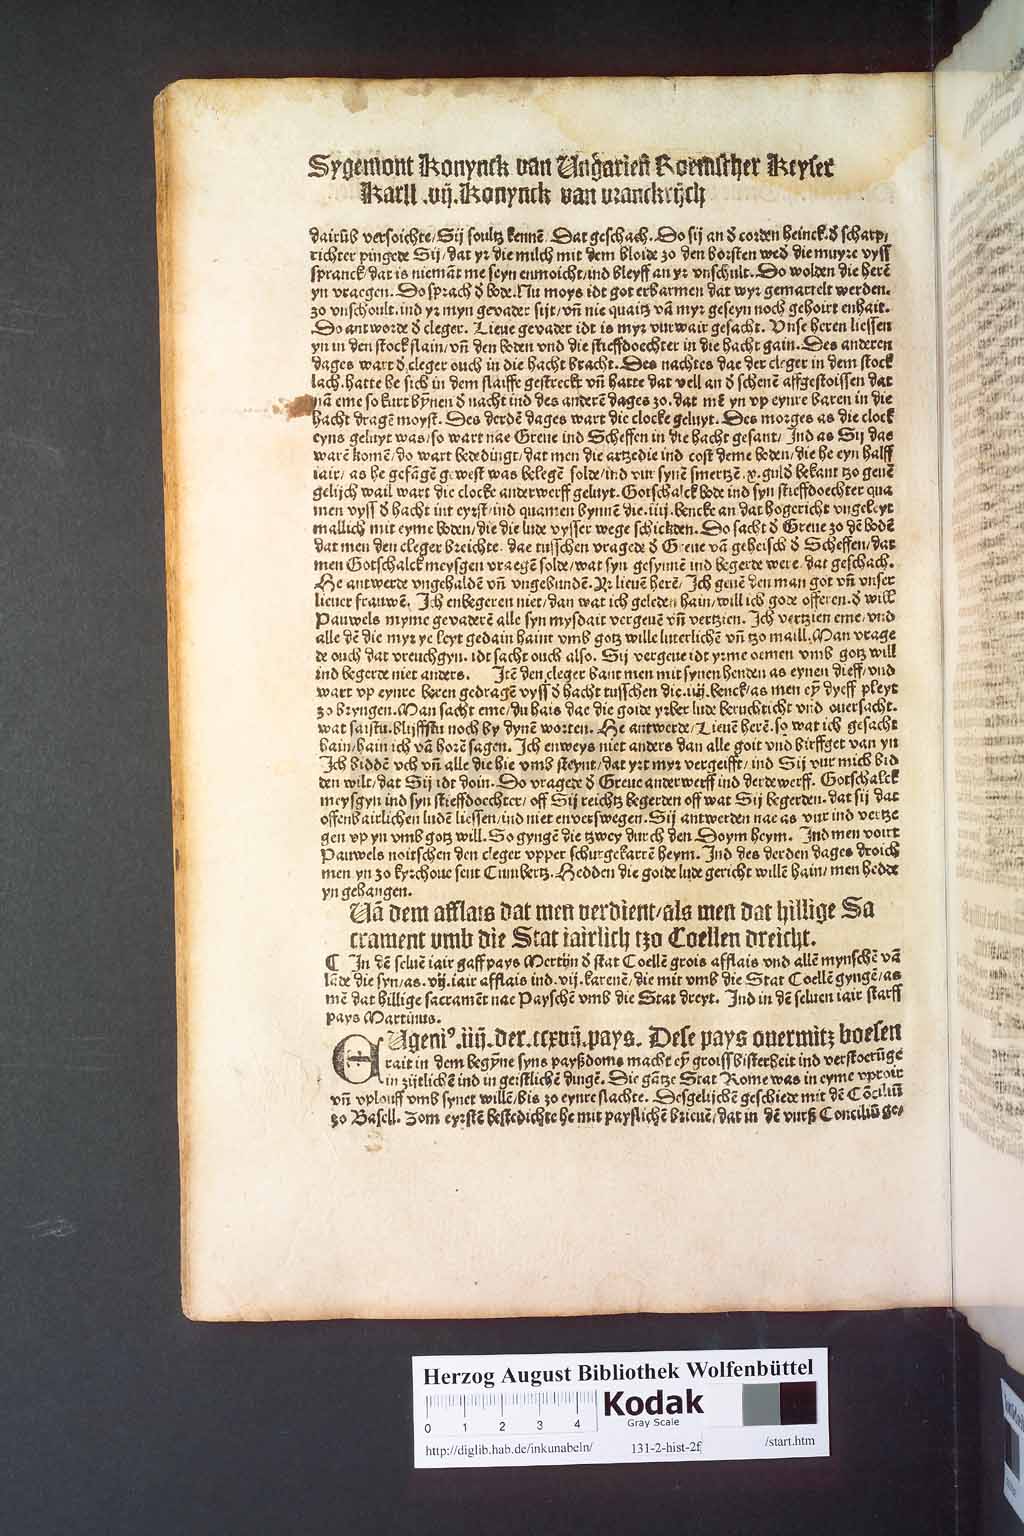 Sygemont Konynck van Ungarien Roemscher Keyser
Karll .vij. Konynck van vranckrijch
dairūb versoichte/ Sij soultz kennē. Dat geschach. Do sij an d corden heinck. d scharp/
richter pingede Sij/ dat yr die milch mit dem bloide zo den borsten wed die muyre vyss
spranck/ dat is niemāt me seyn enmoicht/ ind bleyff an yr vnschult. Do wolden die herē
yn vraegen. Do sprach d bode. Nu moys idt got erbarmen dat wyr gemartelt werden.
zo vnschoult. ind yr myn gevader sijt/ vn̄ nie quaitz vā myr geseyn noch gehoirt enhait.
Do antworde d cleger. Lieue gevader idt is myr vurwair gesacht. Vnse heren liessen
yn in den stock slain/ vn̄ den boden vnd die stieffdoechter in die hacht gain. Des anderen
dages wart d cleger ouch in die hacht bracht. Des nachtes dae der cleger in dem stock
lach. hatte he sich in dem slaiffe gestreckt vn̄ hatte dat vell an d schenē affgestoissen dat
mā eme so kurt bȳnen d nacht ind des anderē dages zo. dat mē yn vp eynre baren in die
hacht dragē moyst. Des derdē dages wart die clocke geluyt. Des morges as die clock
eyns geluyt was/ so wart nae Greue ind Scheffen in die hacht gesant/ Ind as Sij dae
warē komē/ do wart bededingt/ dat men die artzedie ind cost deme boden/ die he eyn halff
iair/ as he gefāgē gewest was belegē solde/ ind vur synē smertzē .x. guld bekant tzo geuē
gelijch wail wart die clocke anderwerff geluyt. Gotschalck bode ind syn stieffdoechter qua
men vyss d hacht int eyrst/ ind quamen bynnē die .iiij. bencke an dat hogericht vngeleyt
mallich mit eyme boden/ die die lude vysser wege schickden. Do sacht d Greue zo dē bodē
dat men den cleger breichte. dae tusschen vragede d Greue vā geheisch d Scheffen/ dat
men Gotschalck meysgen vraegē solde/ wat syn gesynnē ind begerde were. dat geschach.
He antwerde vngehaldē vn̄ vngebundē. Yr lieuē herē/ Ich geuē den man got vn̄ vnser
lieuer frauwē. Ich enbegeren niet/ dan wat ich geleden hain/ will ich gode offeren. d will
Pauwels myme gevaderē alle syn mysdait vergeuē vn̄ vertzien. Ich vertzien eme/ vnd
alle dē die myr ye leyt gedain haint vmb gotz wille luterlichē vn̄ tzo maill. Man vrage
de ouch dat vreuchgyn. idt sacht ouch also. Sij vergeue idt yrme oemen vmb gotz will
ind begerde niet anders. Itē den cleger bant men mit synen henden as eynen dieff/ vnd
wart vp eynre beren gedragē vyss d hacht tusschen die .iiij. benck/ as men eȳ dyeff pleyt
zo bryngen. Man sacht eme/ du hais dae die goide yrber lude beruchticht vnd ouersacht.
wat saistu. blijffstu noch by dynē worten. He antwerde/ Lieuē herē. so wat ich gesacht
hain/ hain ich vā horē sagen. Ich enweys niet anders dan alle goit vnd birffget van yn
Ich biddē vch vn̄ alle die hie vmb steynt/ dat yrt myr vergeifft/ ind Sij vur mich bid
den wilt/ dat Sij idt doin. Do vragede d Greue anderwerff ind derdewerff. Gotschalck
meysgyn ind syn stieffdoechter/ off Sij reichtz begerden off wat Sij begerden. dat sij dat
offenbairlichen ludē liessen/ ind niet enverswegen. Sij antwerden nae as vur ind vertze
gen vp yn vmb gotz will. So gyngē die tzwey durch den Doym heym. Ind men voirt
Pauwels noitschen den cleger vpper schurgekarrē heym. Ind des derden dages droich
men yn zo kyrchoue sent Cumbertz. Hedden die goide lude gericht willē hain/ men hedde
yn gehangen.
Uā dem afflais dat men verdient/ als men dat hillige Sa
crament vmb die Stat iairlich tzo Coellen dreicht.
¶ In dē seluē iair gaff pays Mertijn d stat Coellē grois afflais vnd allē mynschē vā
lāde die syn/ as .vij. iair afflais ind .vij. karenē/ die mit vmb die Stat Coellē gyngē/ as
mē dat hillige sacramēt nae Payschē vmb die Stat dreyt. Ind in dē seluen iair starff
pays Martinus.
EUgeni⁹ .iiij. der .ccxvij. pays. Dese pays ouermitz boesen
rait in dem begȳne syns payßdoms macht eȳ groiss bisterheit ind verstoerūge
in zijtlichē ind in geistlichē dingē. Die gātze Stat Rome was in eyme vproir
vn̄ vplouff vmb synet willē/ bis zo eynre slachte. Desgelijchē geschiede mit dē Cōciliū
zo Basell. Zom eyrstē bestedichte he mit payslichē brieuē/ dat in dē vurß Conciliū ge/
Herzog August Bibliothek Wolfenbüttel
0 1 2 3 4
Kodak
Gray Scale
http://diglib.hab.de/inkunabeln/ 131-2-hist-2f /start.htm